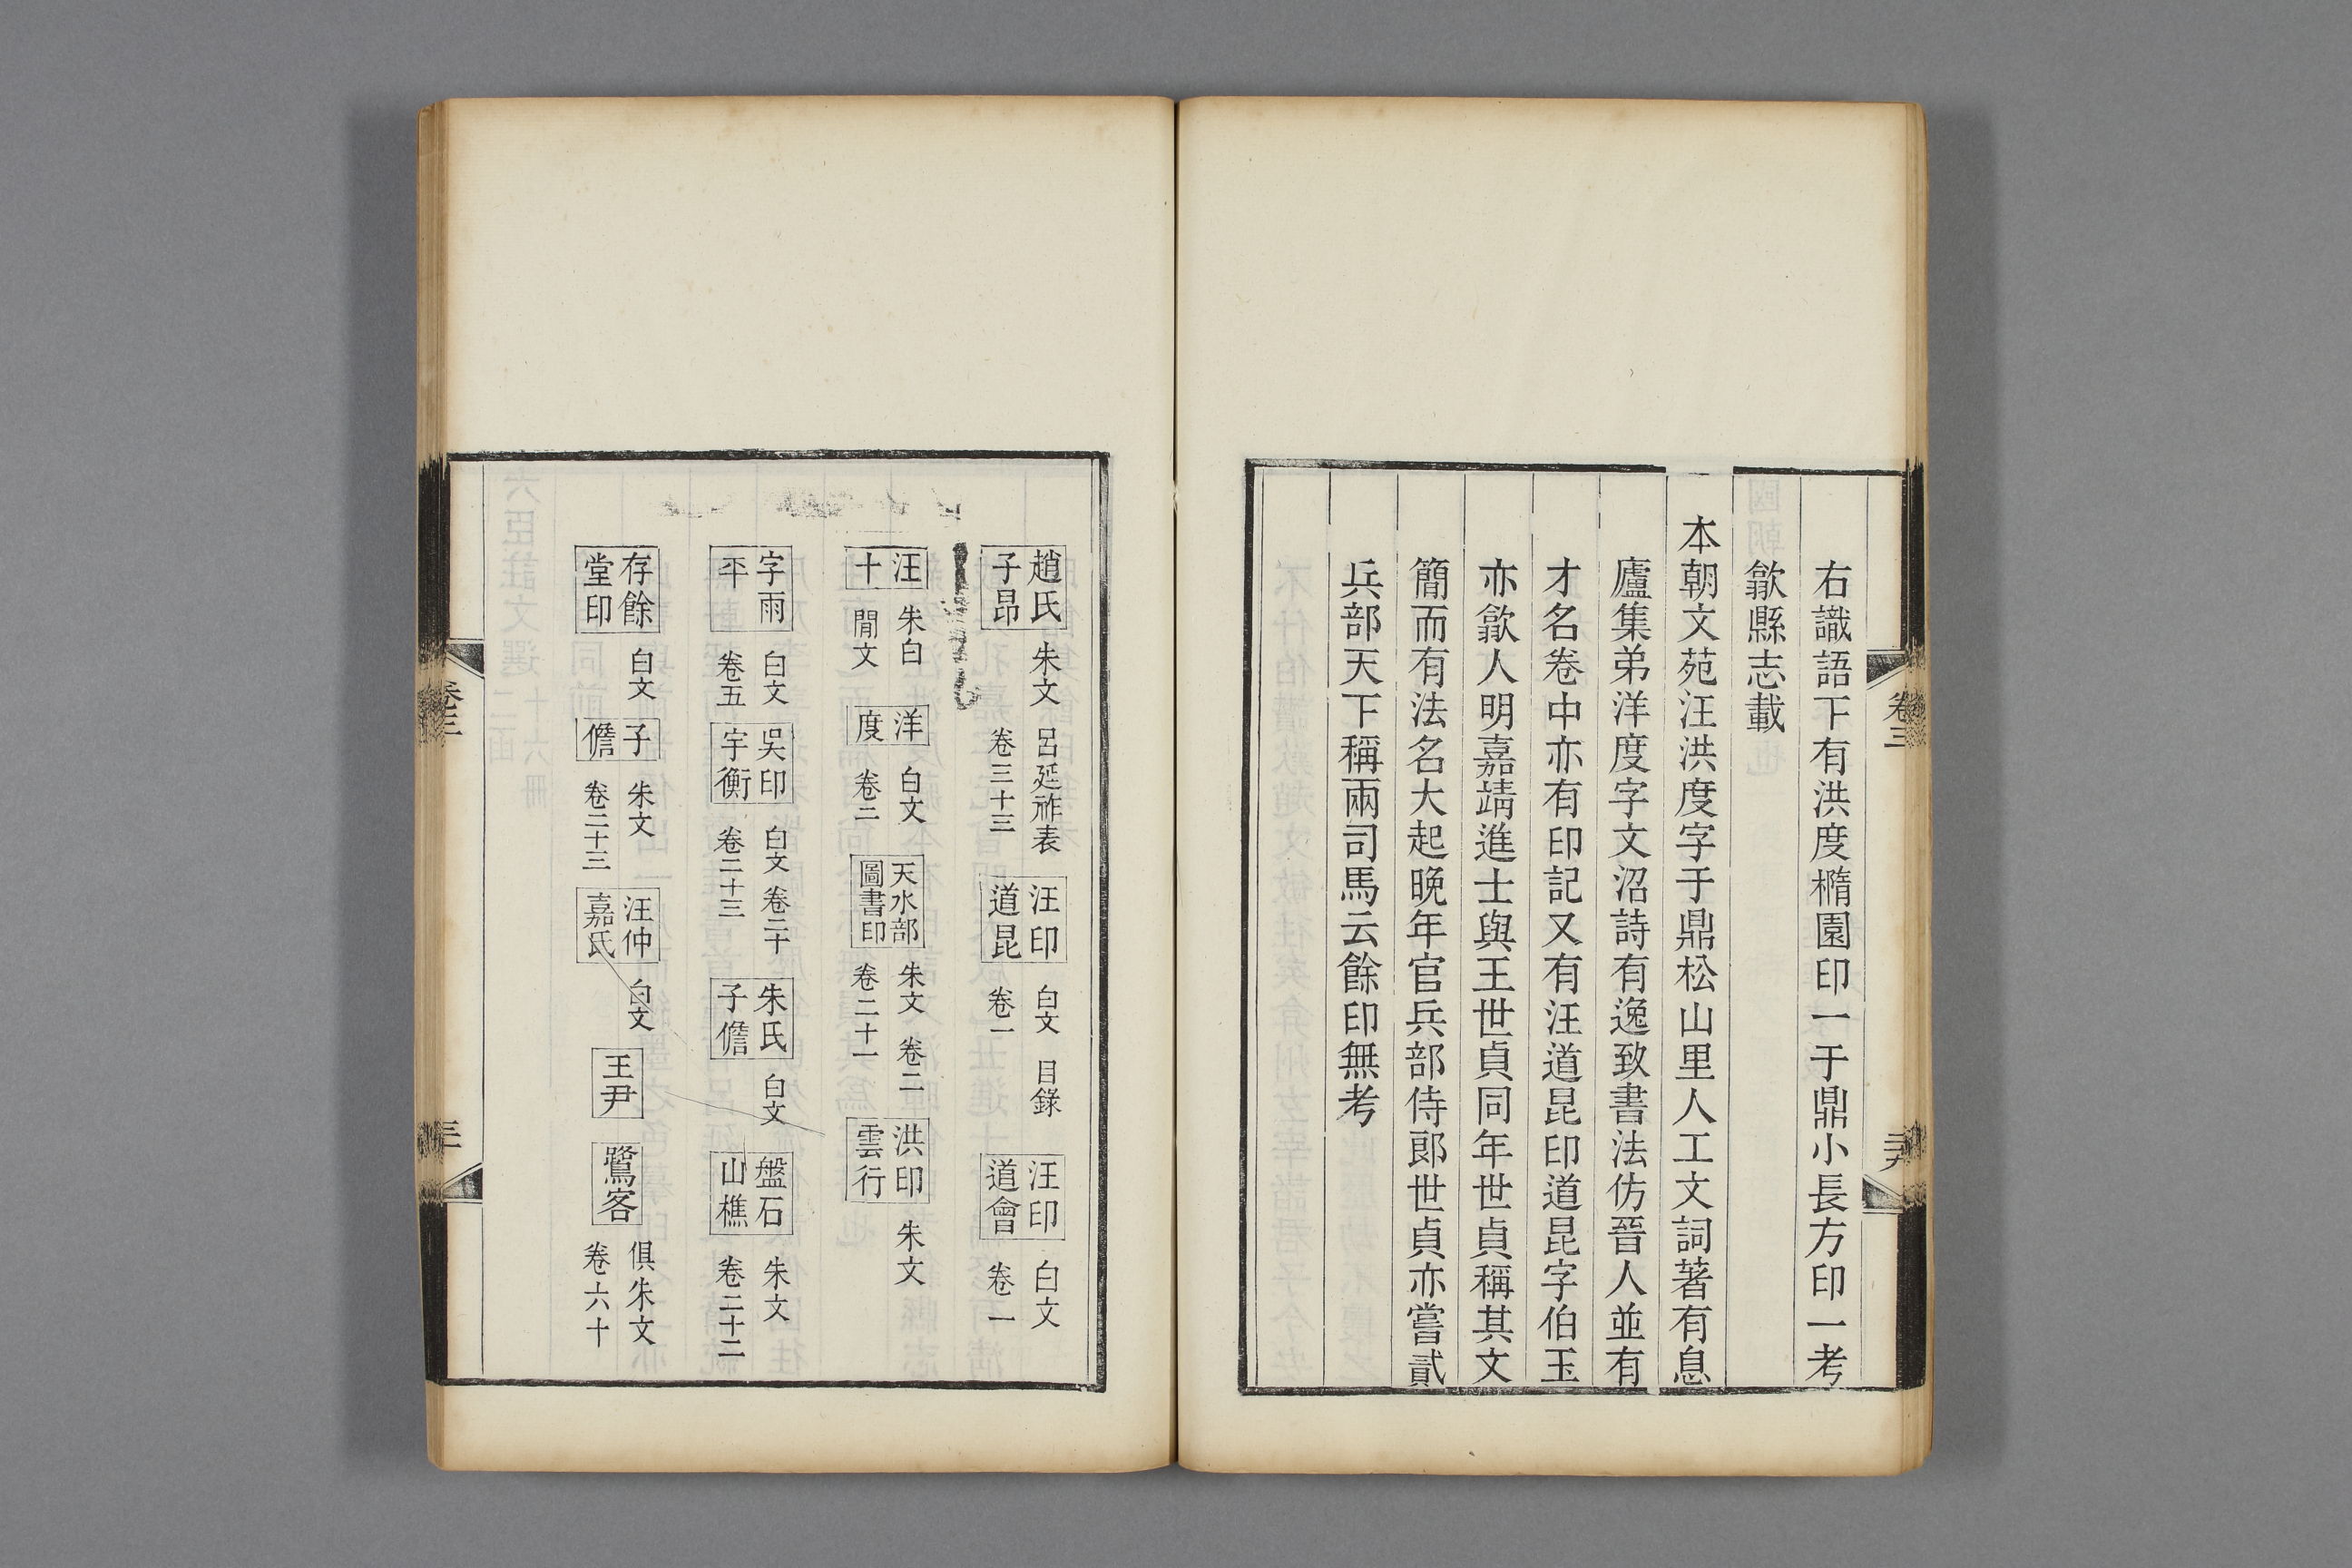 右識語下有洪度櫤園印一于鼎小長方印一考
歙縣志載
本朝文苑汪洪度字于鼎松山里人工文詞著有息
廬集弟洋度字文沼詩有逸致書法仿晉人並有
才名卷中亦有印記又有汪道昆印道昆字伯玉
亦歙人明嘉靖進士與王世貞同年世貞稱其文
簡而有法名大起晚年官兵部侍郎世貞亦嘗貳
兵部天下稱兩司馬云餘印無考
卷三
趙氏
子昂
朱文
呂延祚表
卷三十三
汪印
道昆
白文
目錄
卷一
汪印
道會
白文
卷一
汪
十
朱白
閒文
洋
度
白文
卷二
天水部
圖書印
朱文
卷二
卷二十一
洪印
雲行
朱文
字雨
平
白文
卷五
吳印
宇衡
白文
卷二十
卷二十三
朱氏
子儋
白文
盤石
山樵
朱文
卷二十二
存餘
堂印
白文
子
儋
朱文
卷二十三
汪仲
嘉氏
白文
王尹
鷺客
俱朱文
卷六十
卷三